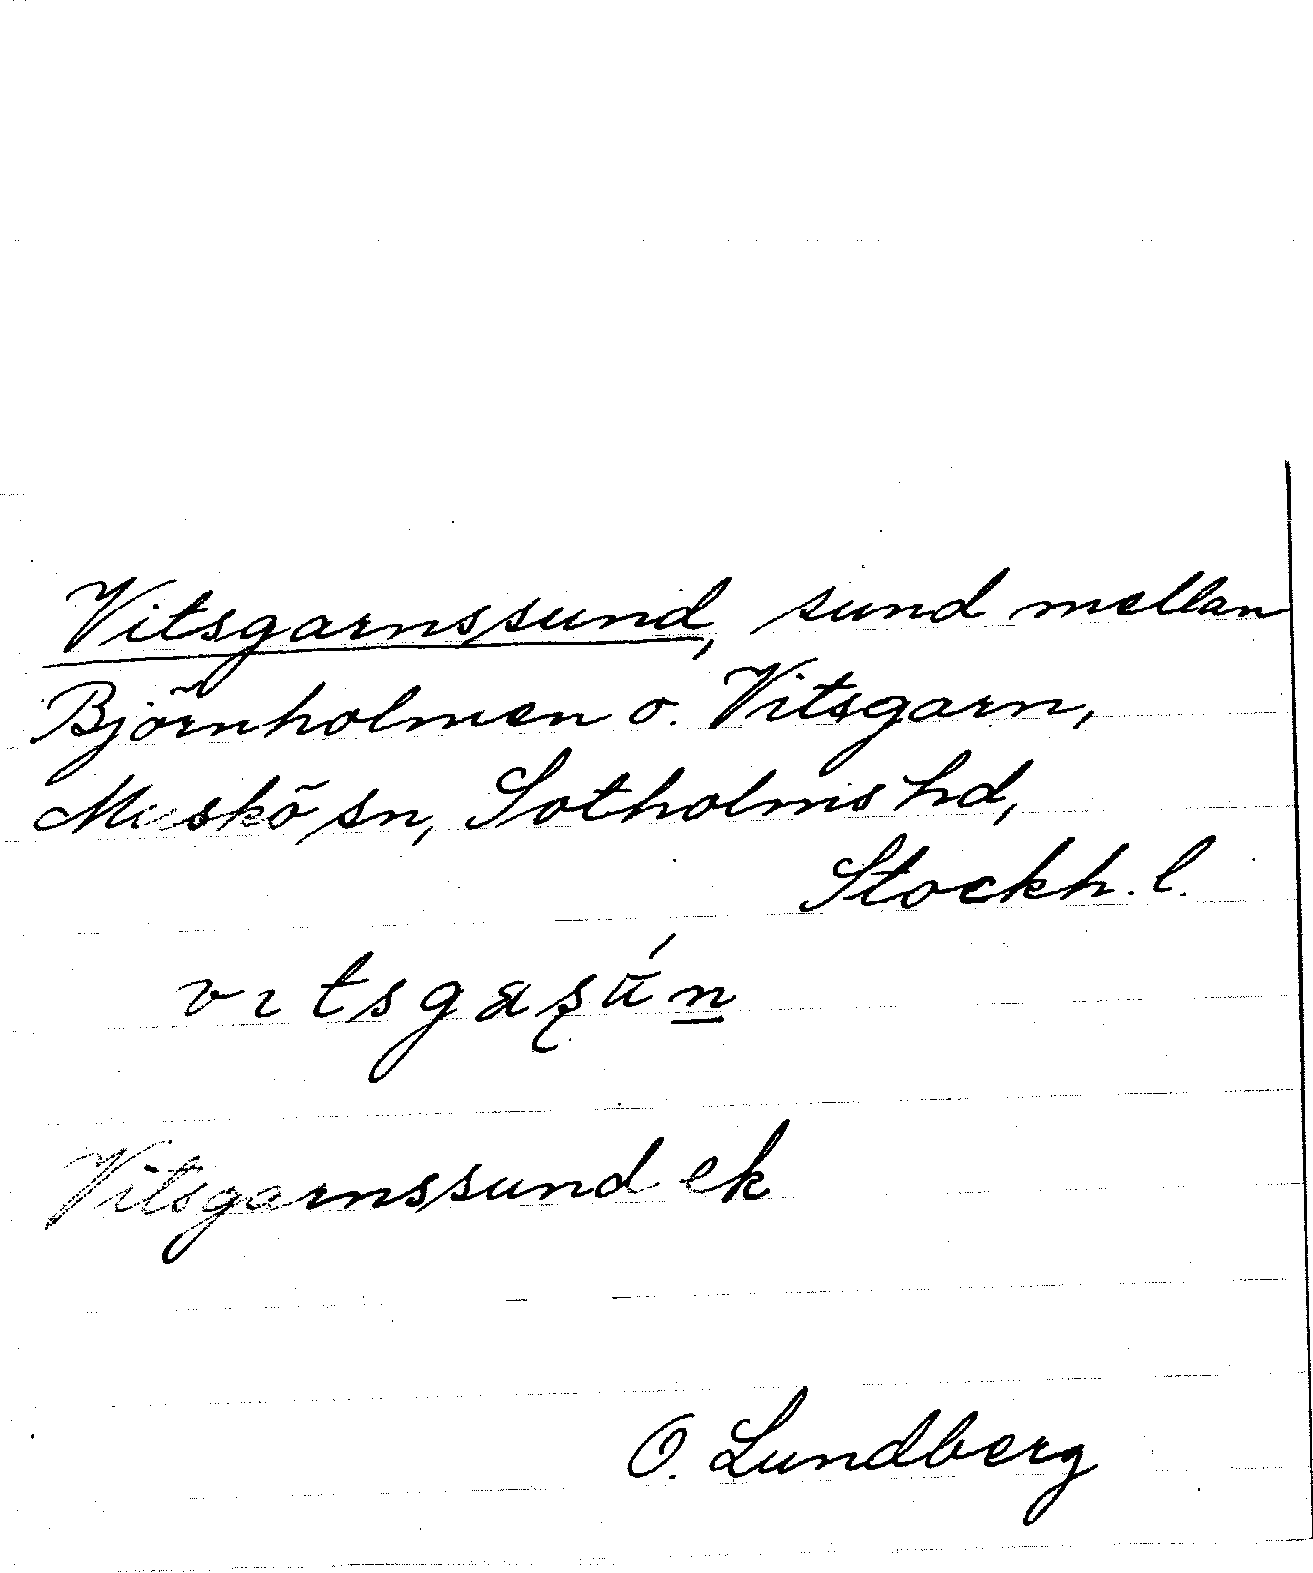 Vitsgarnssund, sund mellan
Björnholmen o. Vitsgarn,
Muskö sn, Sotholms hd,
Stockh. l.
Vitsgarnssund ek
O. Lundberg